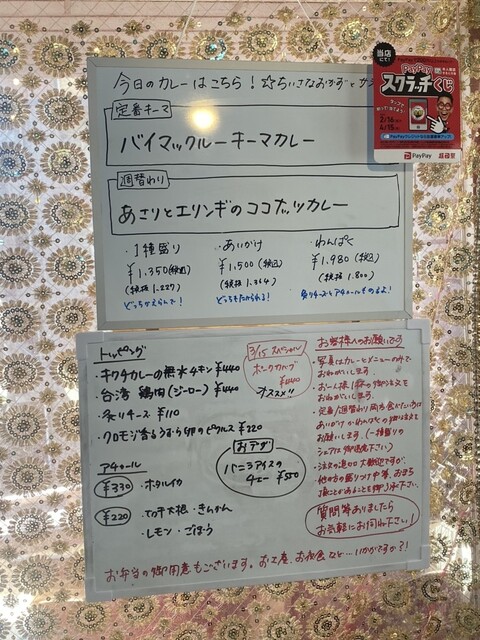 今日のカレーはこちら！ ☆ちいさなおかずとサ
定番キーマ
バイマックルーキーマカレー
週替わり
あさりとエリンギのココナッツカレー
・1種盛り
¥1,350(税込)
(税抜 1,227)
どっちかえらんで！
・あいがけ
¥1,500(税込)
(税抜 1,364)
どっちもたべれる！
・わんぱく
¥1,980(税込)
(税抜 1,800)
炙りチーズとアチャールものるよ！
当店にて！
PayPay
スクラッチくじ
PayPay
トッピング
・キクチカレーの無水チキン ¥440
・台湾 鶏肉(ジーロー) ¥440
・炙りチーズ ¥110
・クロモジ香るうずら卵のピクルス ¥220
3/15 スペシャル
ポークカバブ
¥440
オススメ!!
アチャール
¥330 ・ホタルイカ
¥220 ・大根 ・きんかん
・レモン ・ごぼう
おアゲ
バニラアイスの
チェー ¥550
お客様へのお願いです
・写真はカレーとメニューのみで
おねがいします。
・お一人様1杯の御注文を
おねがいします。
・定番/週替わり両方食べたい方は
あいがけ かわんぱくの御注文を
お願いします。(一種盛りの
シェアは御遠慮下さい)
・注文の追加は大歓迎ですが
他の方の盛りつけ中等、お待ち
頂くことがあることを御了承下さい。
質問等ありましたら
お気軽にお伺い下さい！
お弁当の御用意もございます。お土産、お夜食など…いかがですか?!